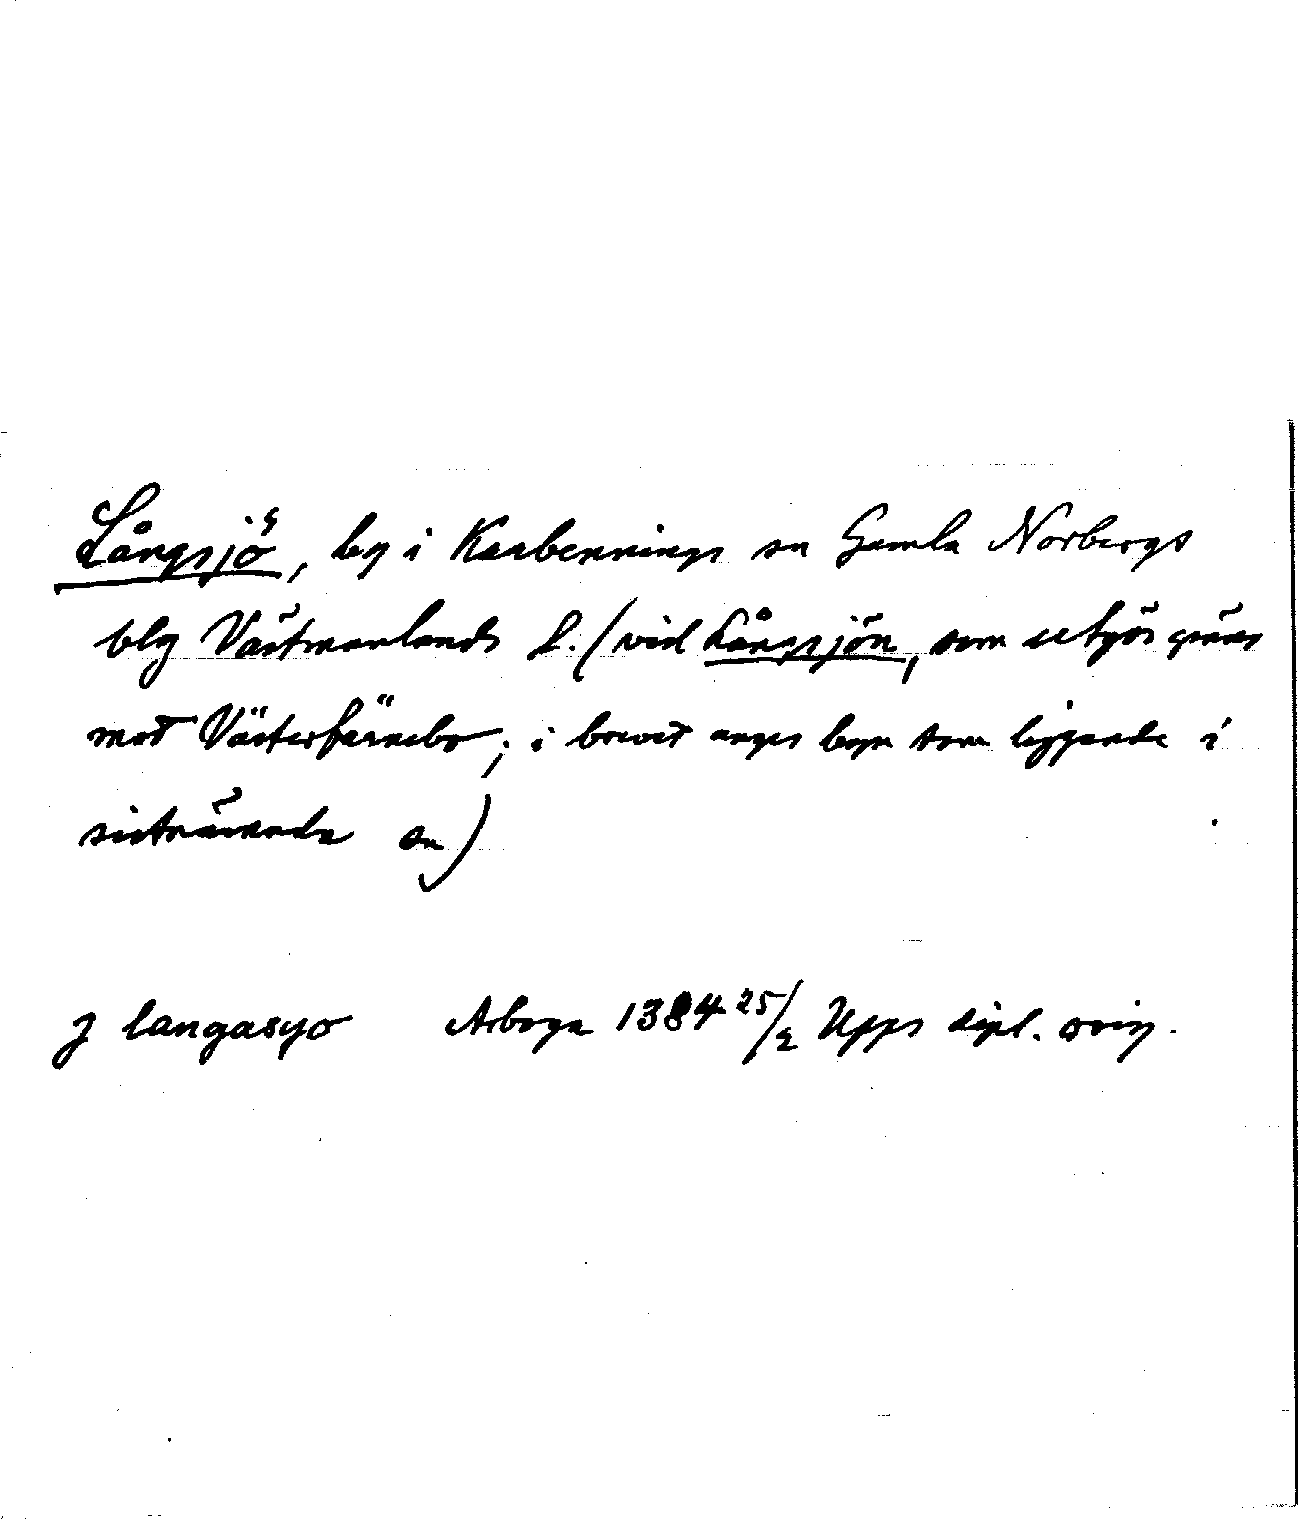 Långsjö, by i Karbennings sn Gamla Norbergs
blg Västmanlands l. (vid Långsjön, som utgör gräns
mot Västerfärnebo; i brevet anges byn som liggande i
sistnämnda sn)
J langasyo Arboga 1384 25/2 Upps dipl. orig.